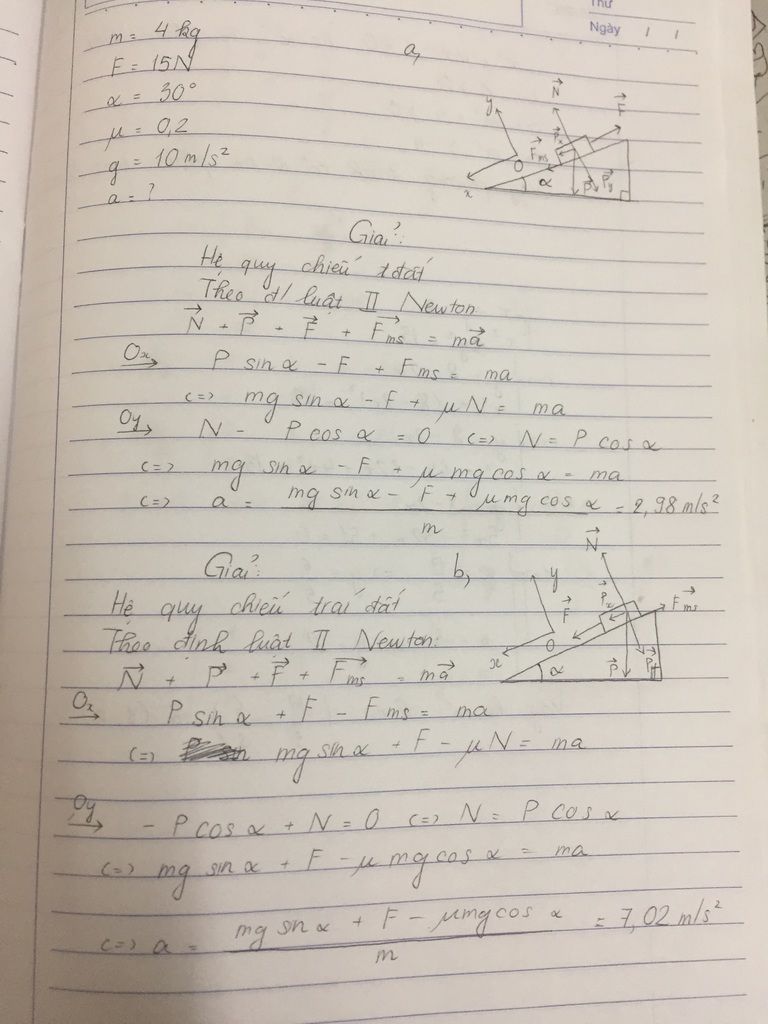 Thứ
Ngày / /
m = 4 kg
a,
F = 15N
α = 30°
μ = 0,2
g = 10 m/s²
a = ?
y N F
Px
Fms
O
x α P Py
Giải:
Hệ quy chiếu tđất
Theo đl luật II Newton
N + P + F + Fms = ma
Ox P sin α - F + Fms = ma
<=> mg sin α - F + μ N = ma
Oy N - P cos α = 0 <=> N = P cos α
<=> mg sin α - F + μ mg cos α = ma
<=> a = mg sin α - F + μ mg cos α / m = 2,98 m/s²
Giải: b,
N
y
Px Fms
F
O
x α P Py
Hệ quy chiếu trái đất
Theo định luật II Newton:
N + P + F + Fms = ma
Ox P sin α + F - Fms = ma
<=> mg sin α + F - μ N = ma
Oy - P cos α + N = 0 <=> N = P cos α
<=> mg sin α + F - μ mg cos α = ma
<=> a = mg sin α + F - μmg cos α / m = 7,02 m/s²